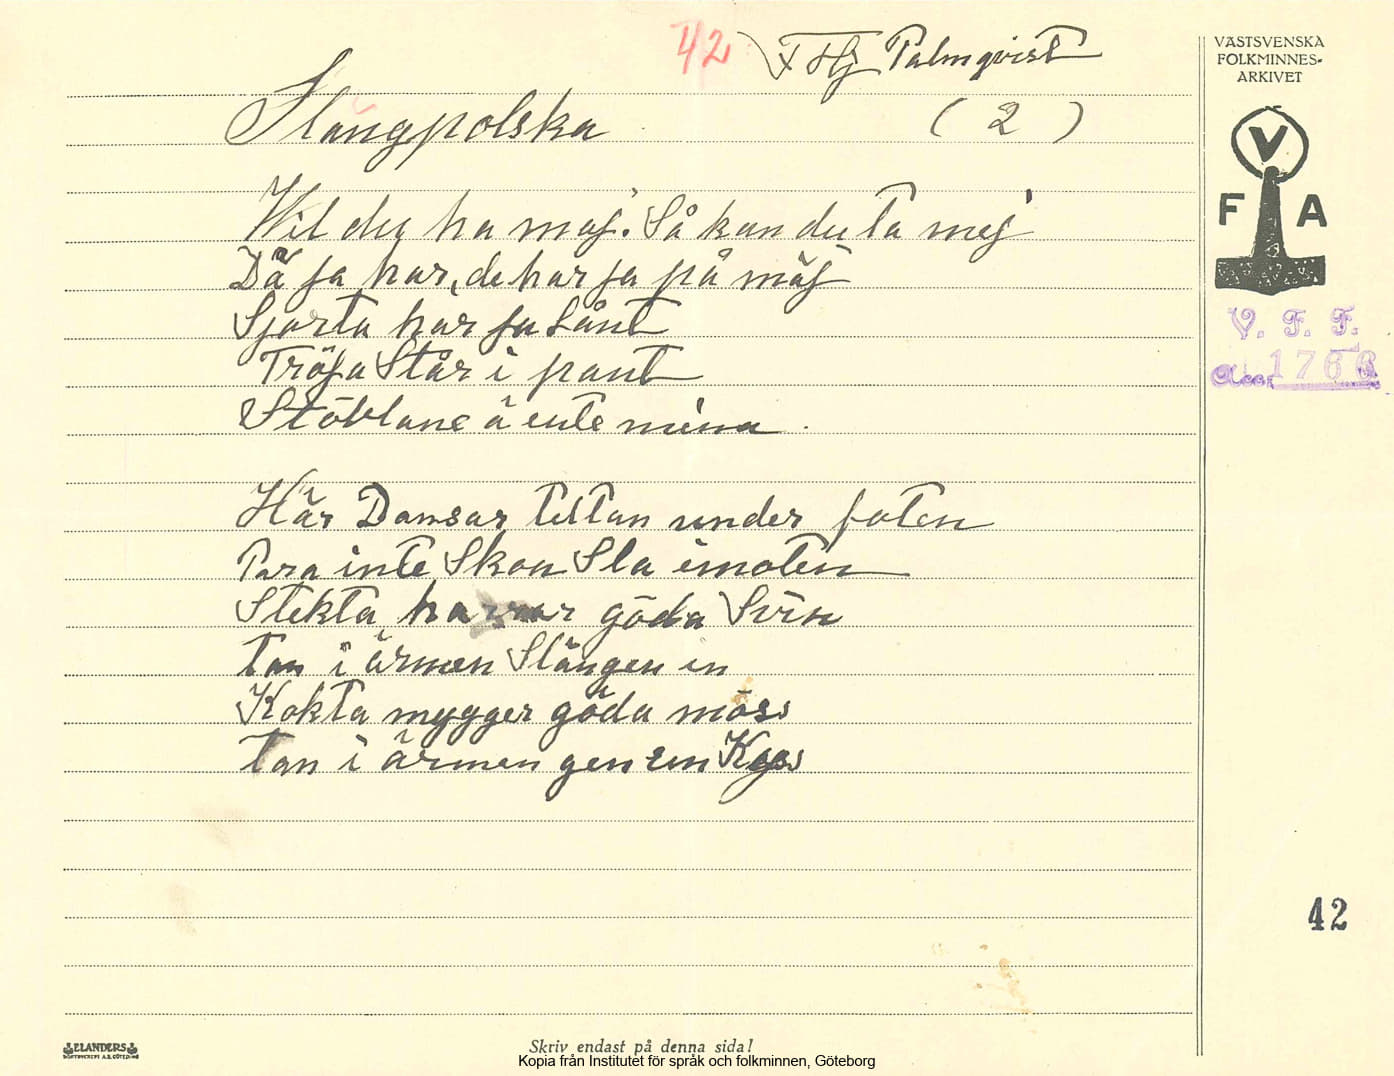 42 F Hj Palmqvist
Slängpolska ( 2 )
Wil du ha maj. Så kan du ta mej
Dä ja har, de har ja på mäj
Sjorta har ja Lånt
Tröja Står i pant
Stövlane ä ente mina.
Här Dansar tettan under foten
Para inte Skon Sla emoten
Stekta göda Svin
tan i ärmen Slängen in
Kokta mygger göda möss
tan i ärmen gen en Kyss
VÄSTSVENSKA
FOLKMINNES-
ARKIVET
V
F A
V. F. F.
Acc. 1766
42
ELANDERS
BOKTRYCKERI A.B. GÖTEBORG
Skriv endast på denna sida!
Kopia från Institutet för språk och folkminnen, Göteborg